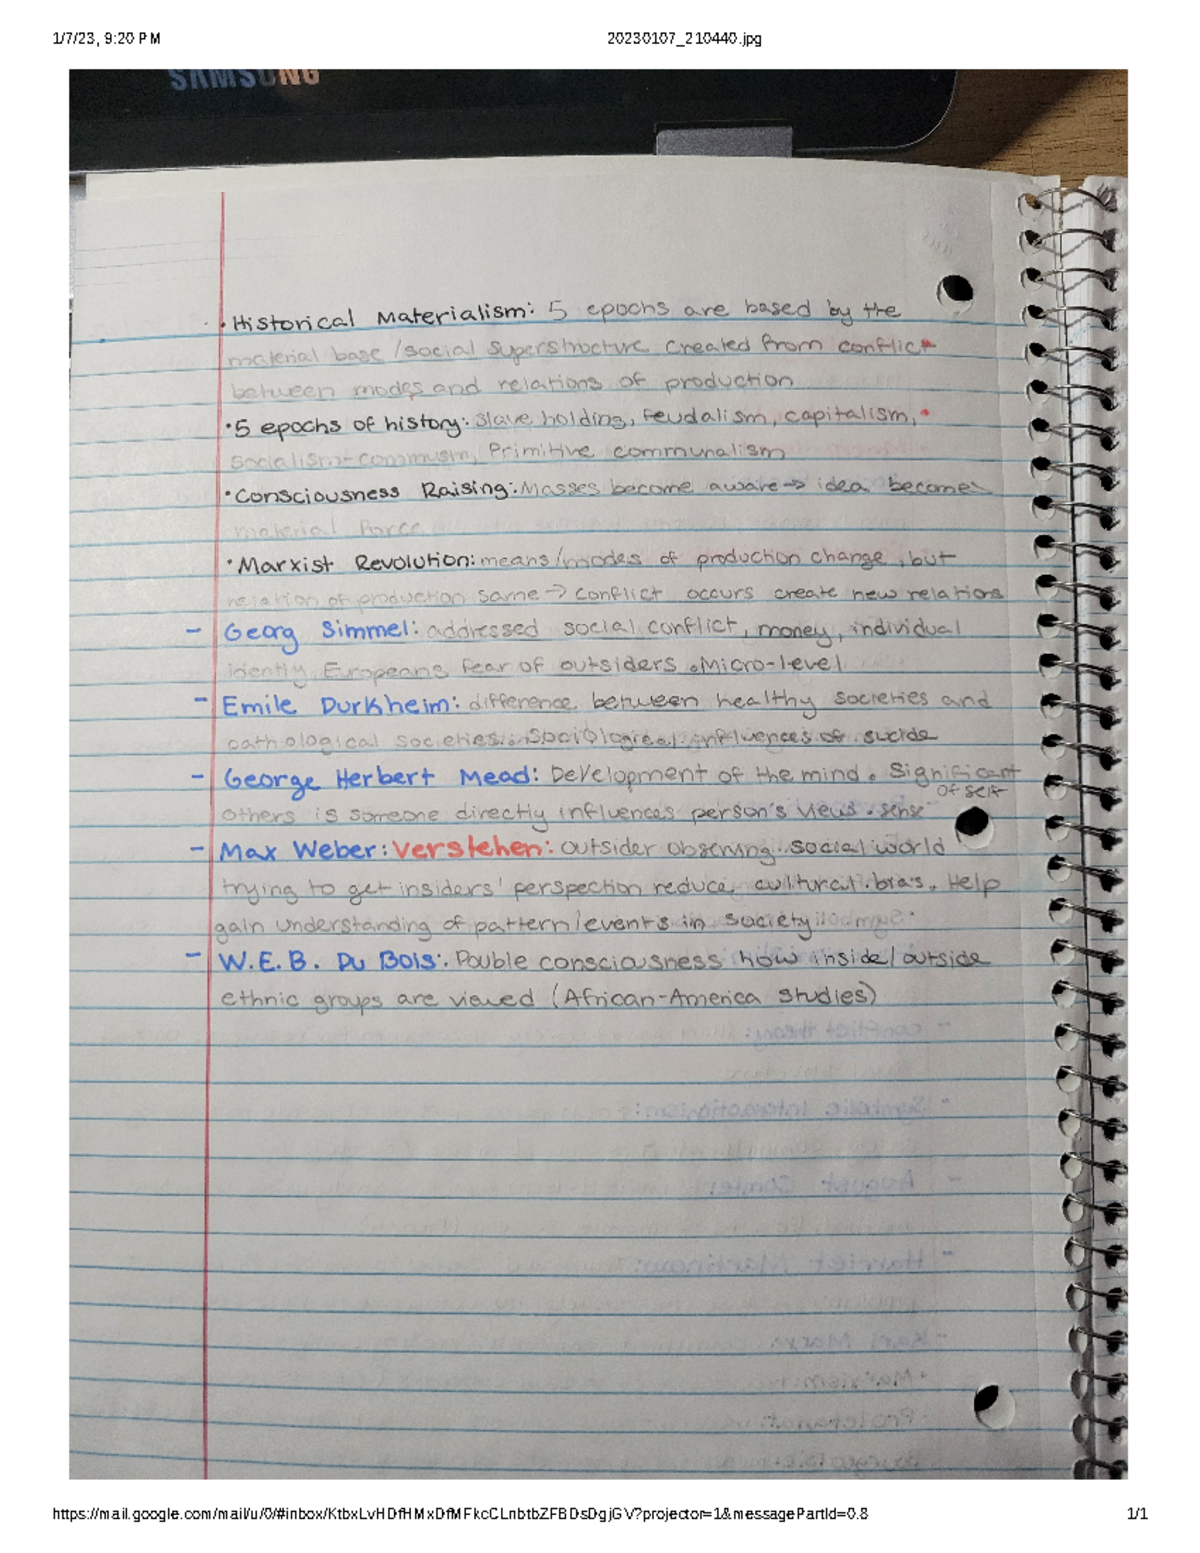 1/7/23, 9:20 PM
20230107_210440.jpg
SAMSUNG
• Historical Materialism: 5 epochs are based by the
material base/social superstructure created from conflict
between modes and relations of production
• 5 epochs of history: slave holding, feudalism, capitalism,
socialism-commusm, Primitive communalism
• Consciousness Raising: Masses become aware → idea becomes
material force
• Marxist Revolution: means/modes of production change, but
relation of production same → conflict occurs create new relations
- Georg Simmel: addressed social conflict, money, individual
identity, Europeans fear of outsiders. Micro-level
- Emile Durkheim: difference between healthy societies and
pathological societies. Sociological influences of sucide
- George Herbert Mead: Development of the mind. Significant
others is someone directly influences person's views. sense of self
- Max Weber: Verstehen: outsider observing social world
trying to get insiders' perspection reduce cultural bias. Help
gain understanding of pattern/events in society
- W.E.B. Du Bois: Double consciousness how inside/outside
ethnic groups are viewed (African-America Studies)
- conflict theory:
- Symbolic Interactionism:
- August Comte:
- Harriet Martineau:
- Karl Marx
• Marxism
• Proletariat
Bourgeoisie
https://mail.google.com/mail/u/0/#inbox/KtbxLvHDfHMxDfMFkcCLnbtbZFBDsDgjGV?projector=1&messagePartId=0.8
1/1